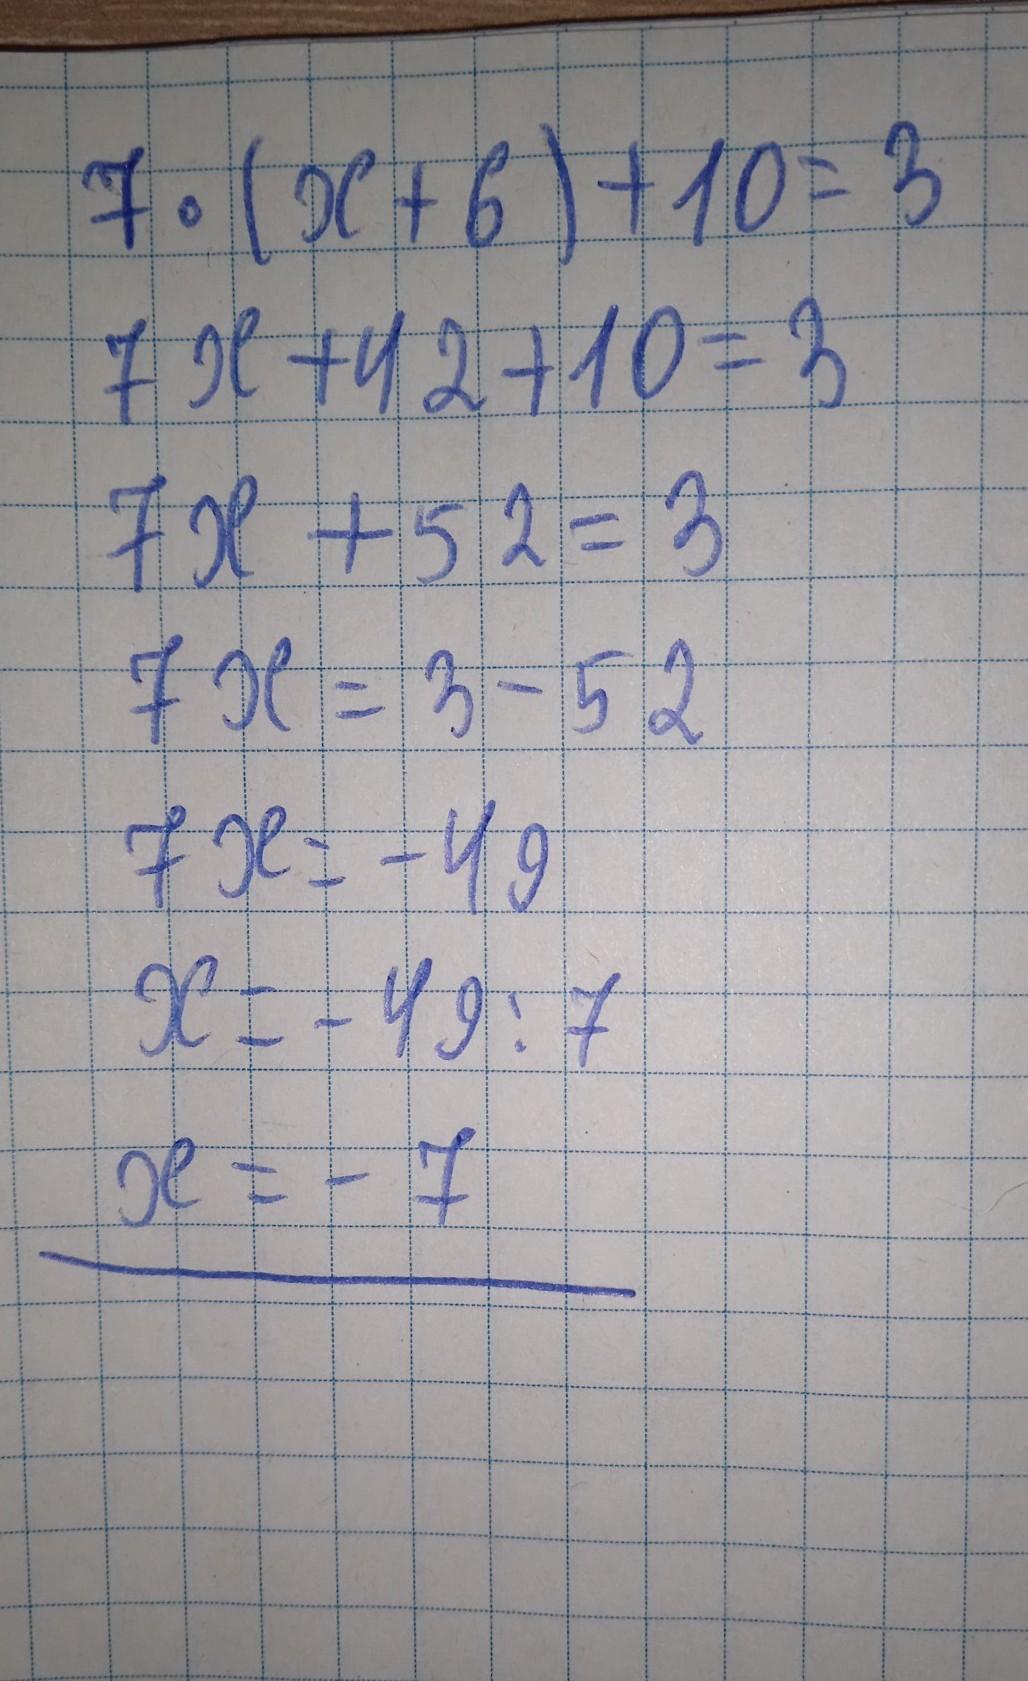 7·(x+6)+10=3
7x+42+10=3
7x+52=3
7x=3-52
7x=-49
x=-49:7
x=-7